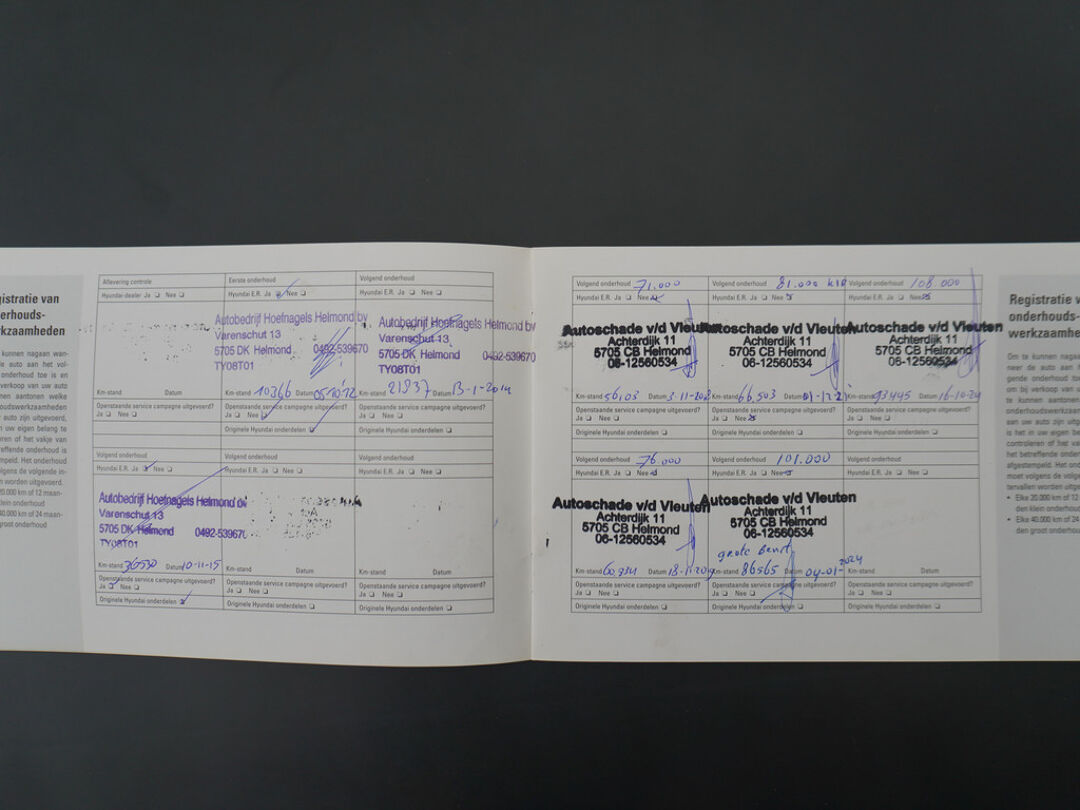 gistratie van
erhouds-
rkzaamheden
kunnen nagaan wan-
de auto aan het vol-
onderhoud toe is en
verkoop van uw auto
nen aantonen welke
oudswerkzaamheden
auto zijn uitgevoerd,
uw eigen belang te
ren of het vakje van
reffende onderhoud is
mpeld. Het onderhoud
olgens de volgende in-
n worden uitgevoerd.
20.000 km of 12 maan-
klein onderhoud
40.000 km of 24 maan-
groot onderhoud
Aflevering controle
Hyundai-dealer Ja Nee
Km-stand Datum
Openstaande service campagne uitgevoerd?
Ja Nee
Eerste onderhoud
Hyundai E.R. Ja Nee
Autobedrijf Hoefnagels Helmond bv
Varenschut 13
5705 DK Helmond 0492-539670
TY08T01
Km-stand 10366 Datum 05-10-'12
Openstaande service campagne uitgevoerd?
Ja Nee
Originele Hyundai onderdelen
Volgend onderhoud
Hyundai E.R. Ja Nee
Autobedrijf Hoefnagels Helmond bv
Varenschut 13
5705 DK Helmond 0492-539670
TY08T01
Km-stand 21937 Datum 13-1-2014
Openstaande service campagne uitgevoerd?
Ja Nee
Originele Hyundai onderdelen
Volgend onderhoud
Hyundai E.R. Ja Nee
Autobedrijf Hoefnagels Helmond
Varenschut 13
5705 DK Helmond 0492-539670
TY08T01
Km-stand 36530 Datum 10-11-15
Openstaande service campagne uitgevoerd?
Ja Nee
Originele Hyundai onderdelen
Volgend onderhoud
Hyundai E.R. Ja Nee
Km-stand Datum
Openstaande service campagne uitgevoerd?
Ja Nee
Originele Hyundai onderdelen
Volgend onderhoud
Hyundai E.R. Ja Nee
Km-stand Datum
Openstaande service campagne uitgevoerd?
Ja Nee
Originele Hyundai onderdelen
Volgend onderhoud 71.000
Hyundai E.R. Ja Nee
Autoschade v/d Vleuten
Achterdijk 11
5705 CB Helmond
06-12560534
Km-stand Datum
Openstaande service campagne uitgevoerd?
Ja Nee
Originele Hyundai onderdelen
Volgend onderhoud 81.000
Hyundai E.R. Ja Nee
Autoschade v/d Vleuten
Achterdijk 11
5705 CB Helmond
06-12560534
Km-stand 66,503 Datum
Openstaande service campagne uitgevoerd?
Ja Nee
Originele Hyundai onderdelen
Volgend onderhoud 108.000
Hyundai E.R. Ja Nee
Autoschade v/d Vleuten
Achterdijk 11
5705 CB Helmond
06-12560534
Km-stand 93445 Datum 16-10-24
Openstaande service campagne uitgevoerd?
Ja Nee
Originele Hyundai onderdelen
Volgend onderhoud 76.000
Hyundai E.R. Ja Nee
Autoschade v/d Vleuten
Achterdijk 11
5705 CB Helmond
06-12560534
Km-stand 60,934 Datum
Openstaande service campagne uitgevoerd?
Ja Nee
Originele Hyundai onderdelen
Volgend onderhoud 101.000
Hyundai E.R. Ja Nee
Autoschade v/d Vleuten
Achterdijk 11
5705 CB Helmond
06-12560534
grote beurt
Km-stand 86565 Datum 04-01-2024
Openstaande service campagne uitgevoerd?
Ja Nee
Originele Hyundai onderdelen
Volgend onderhoud
Hyundai E.R. Ja Nee
Km-stand Datum
Openstaande service campagne uitgevoerd?
Ja Nee
Originele Hyundai onderdelen
Registratie v
onderhouds-
werkzaamhe
Om te kunnen nagaa
neer de auto aan h
gende onderhoud to
om bij verkoop van
te kunnen aantone
onderhoudswerkzaam
aan uw auto zijn uitg
is het in uw eigen be
controleren of het va
het betreffende onder
afgestempeld. Het ond
moet volgens de volgen
tervallen worden uitge
• Elke 20.000 km of 12
den klein onderhoud
• Elke 40.000 km of 24
den groot onderhoud